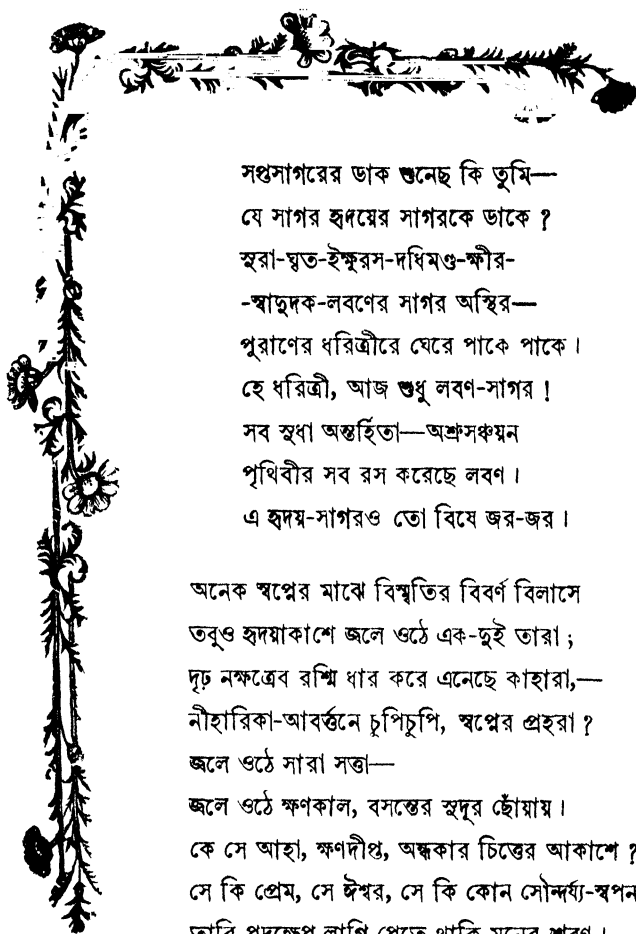 সপ্তসাগরের ডাক শুনেছ কি তুমি—
যে সাগর হৃদয়ের সাগরকে ডাকে ?
সুরা-ঘৃত-ইক্ষুরস-দধিমণ্ড-ক্ষীর-
-স্বাদুদক-লবণের সাগর অস্থির—
পুরাণের ধরিত্রীরে ঘেরে পাকে পাকে ।
হে ধরিত্রী, আজ শুধু লবণ-সাগর !
সব সুধা অন্তর্হিতা—অশ্রুসঞ্চয়ন
পৃথিবীর সব রস করেছে লবণ ।
এ হৃদয়-সাগরও তো বিষে জর-জর ।
অনেক স্বপ্নের মাঝে বিস্মৃতির বিবর্ণ বিলাসে
তবুও হৃদয়াকাশে জলে ওঠে এক-দুই তারা ;
দৃঢ় নক্ষত্রেব রশ্মি ধার করে এনেছে কাহারা,—
নীহারিকা-আবর্ত্তনে চুপিচুপি, স্বপ্নের প্রহরা ?
জলে ওঠে সারা সত্তা—
জলে ওঠে ক্ষণকাল, বসন্তের সুদূর ছোঁয়ায় ।
কে সে আহা, ক্ষণদীপ্ত, অন্ধকার চিত্তের আকাশে ?
সে কি প্রেম, সে ঈশ্বর, সে কি কোন সৌন্দর্য্য-স্বপন
তারি পদক্ষেপ লাগি পেতে থাকি মনের শ্রবণ ।